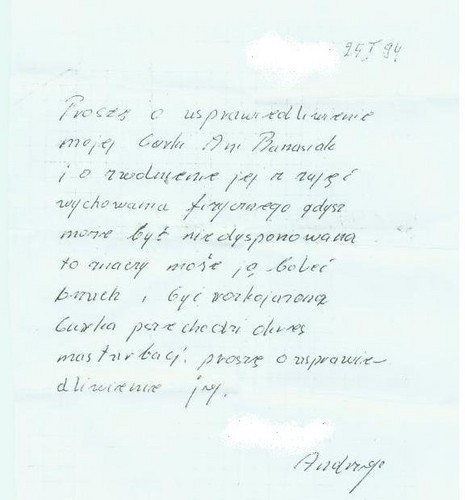 24 I 94
Proszę o usprawiedliwienie
mojej Curki Ani Banasiak
i o zwolnienie jej z zajęć
wychowania fizycznego gdysz
może być niedysponowana
to znaczy może ją boleć
brzuch i być rozkojarzona
Curka przechodzi okres
masturbacj. proszę o usprawie-
dliwienie jej.
Andrzej